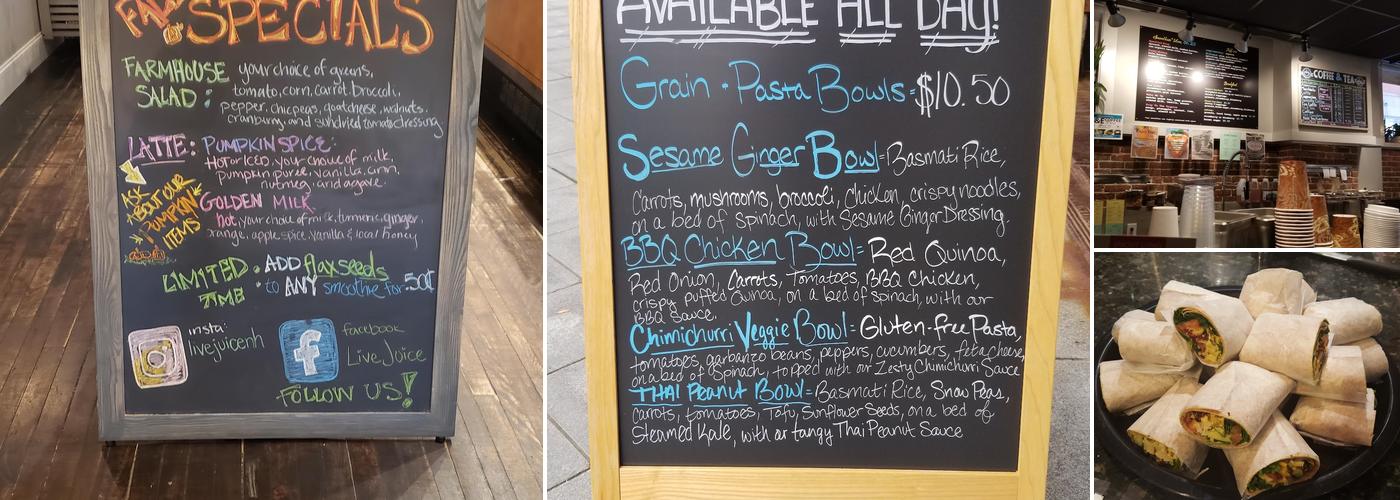 FALL SPECIALS
FARMHOUSE your choice of greens,
SALAD: tomato, corn, carrot, broccoli,
pepper, chicpeas, goatcheese, walnuts,
cranburry, and sundried tomato dressing
LATTE: PUMPKIN SPICE:
HOT or ICED, your choice of milk,
pumpkin puree, vanilla, cinn,
nutmeg, and agave.
ASK
ABOUT OUR
PUMPKIN
ITEMS
GOLDEN MILK
hot, your choice of milk, turmeric, ginger,
orange, apple spice, vanilla & local honey
LIMITED TIME
• ADD flaxseeds
to ANY smoothie for .50¢
insta:
livejuicenh
facebook
Live Juice
FOLLOW US!
AVAILABLE ALL DAY!
Grain • Pasta Bowls = $10.50
Sesame Ginger Bowl = Basmati Rice,
Carrots, mushrooms, broccoli, chicken, crispy noodles,
on a bed of spinach, with Sesame Ginger Dressing.
BBQ Chicken Bowl = Red Quinoa,
Red Onion, Carrots, Tomatoes, BBQ Chicken,
crispy puffed Quinoa, on a bed of spinach, with our
BBQ Sauce.
Chimichurri Veggie Bowl = Gluten-free Pasta,
tomatoes, garbanzo beans, peppers, cucumbers, feta cheese,
on a bed of Spinach, topped with our Zesty Chimichurri Sauce
THAI Peanut Bowl = Basmati Rice, Snow Peas,
carrots, tomatoes, Tofu, Sunflower Seeds, on a bed of
Steamed Kale, with our tangy Thai Peanut Sauce
COFFEE & TEA